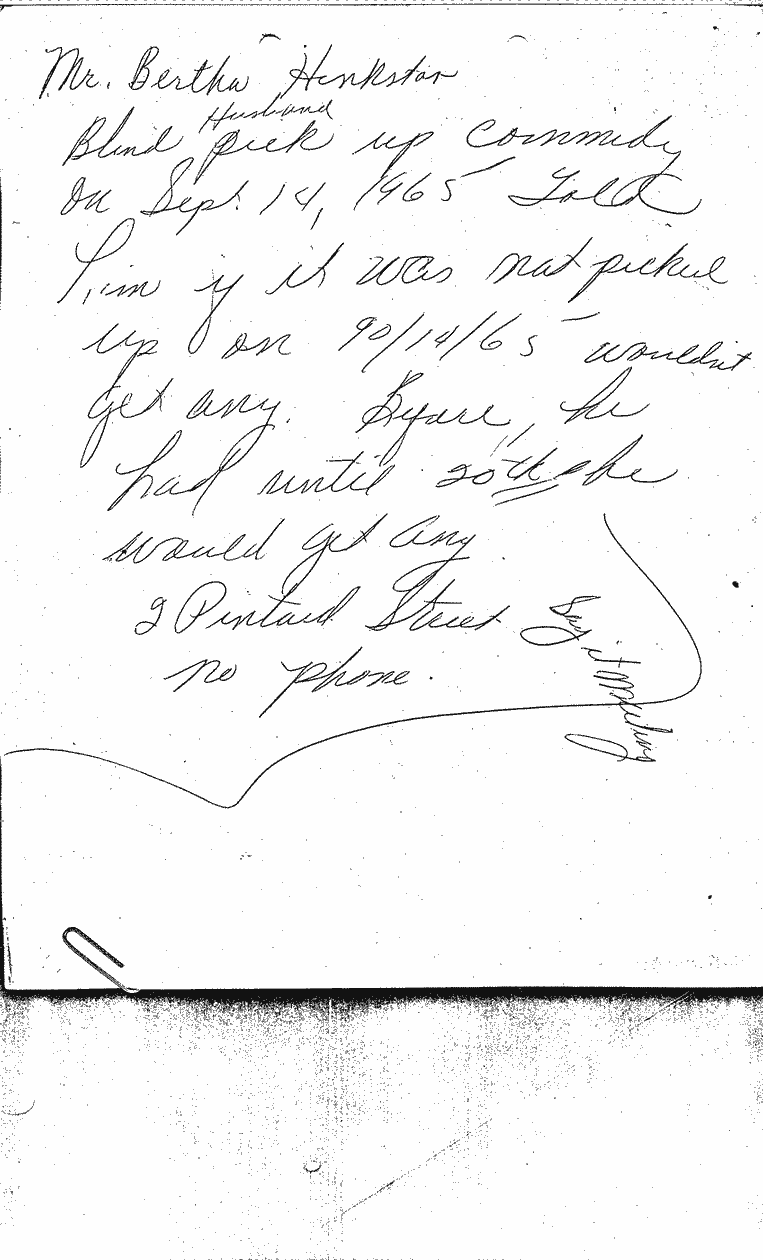 Mr. Bertha Hinkston
Husband
Blind pick up commidy
on Sept. 14, 1965 Told
him if it was not picked
up on 90/14/65 wouldn't
get any. Before, he
had until 20th she
would get any
2 Pintard Street
no phone.
Say it